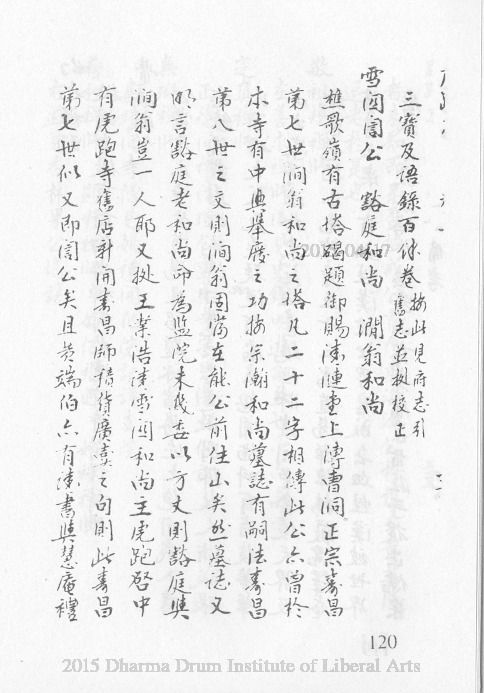 三寶及語錄百餘卷 按此見府志引
舊志並拠校正
雪関誾公 谿庭和尚 澗翁和尚
樵歌嶺有古塔碣題御賜漣堂上傳曹洞正宗壽昌
第七世澗翁和尚之塔凡二十二字相傳此公亦曾於
本寺有中興舉廢之功按宗瀚和尚墓誌有嗣法壽昌
第八世之文則澗翁固當在能公前住山矣然墓誌又
明言谿庭老和尚命為監院未幾委以方丈則谿庭與
澗翁豈一人耶又拠王業浩請雪関和尚主虎跑啓中
有虎跑寺舊店新開壽昌師積貨廣賣之句則此壽昌
第七世似又即誾公矣且黃端伯亦有請書與慧庵禮
2015 Dharma Drum Institute of Liberal Arts
120